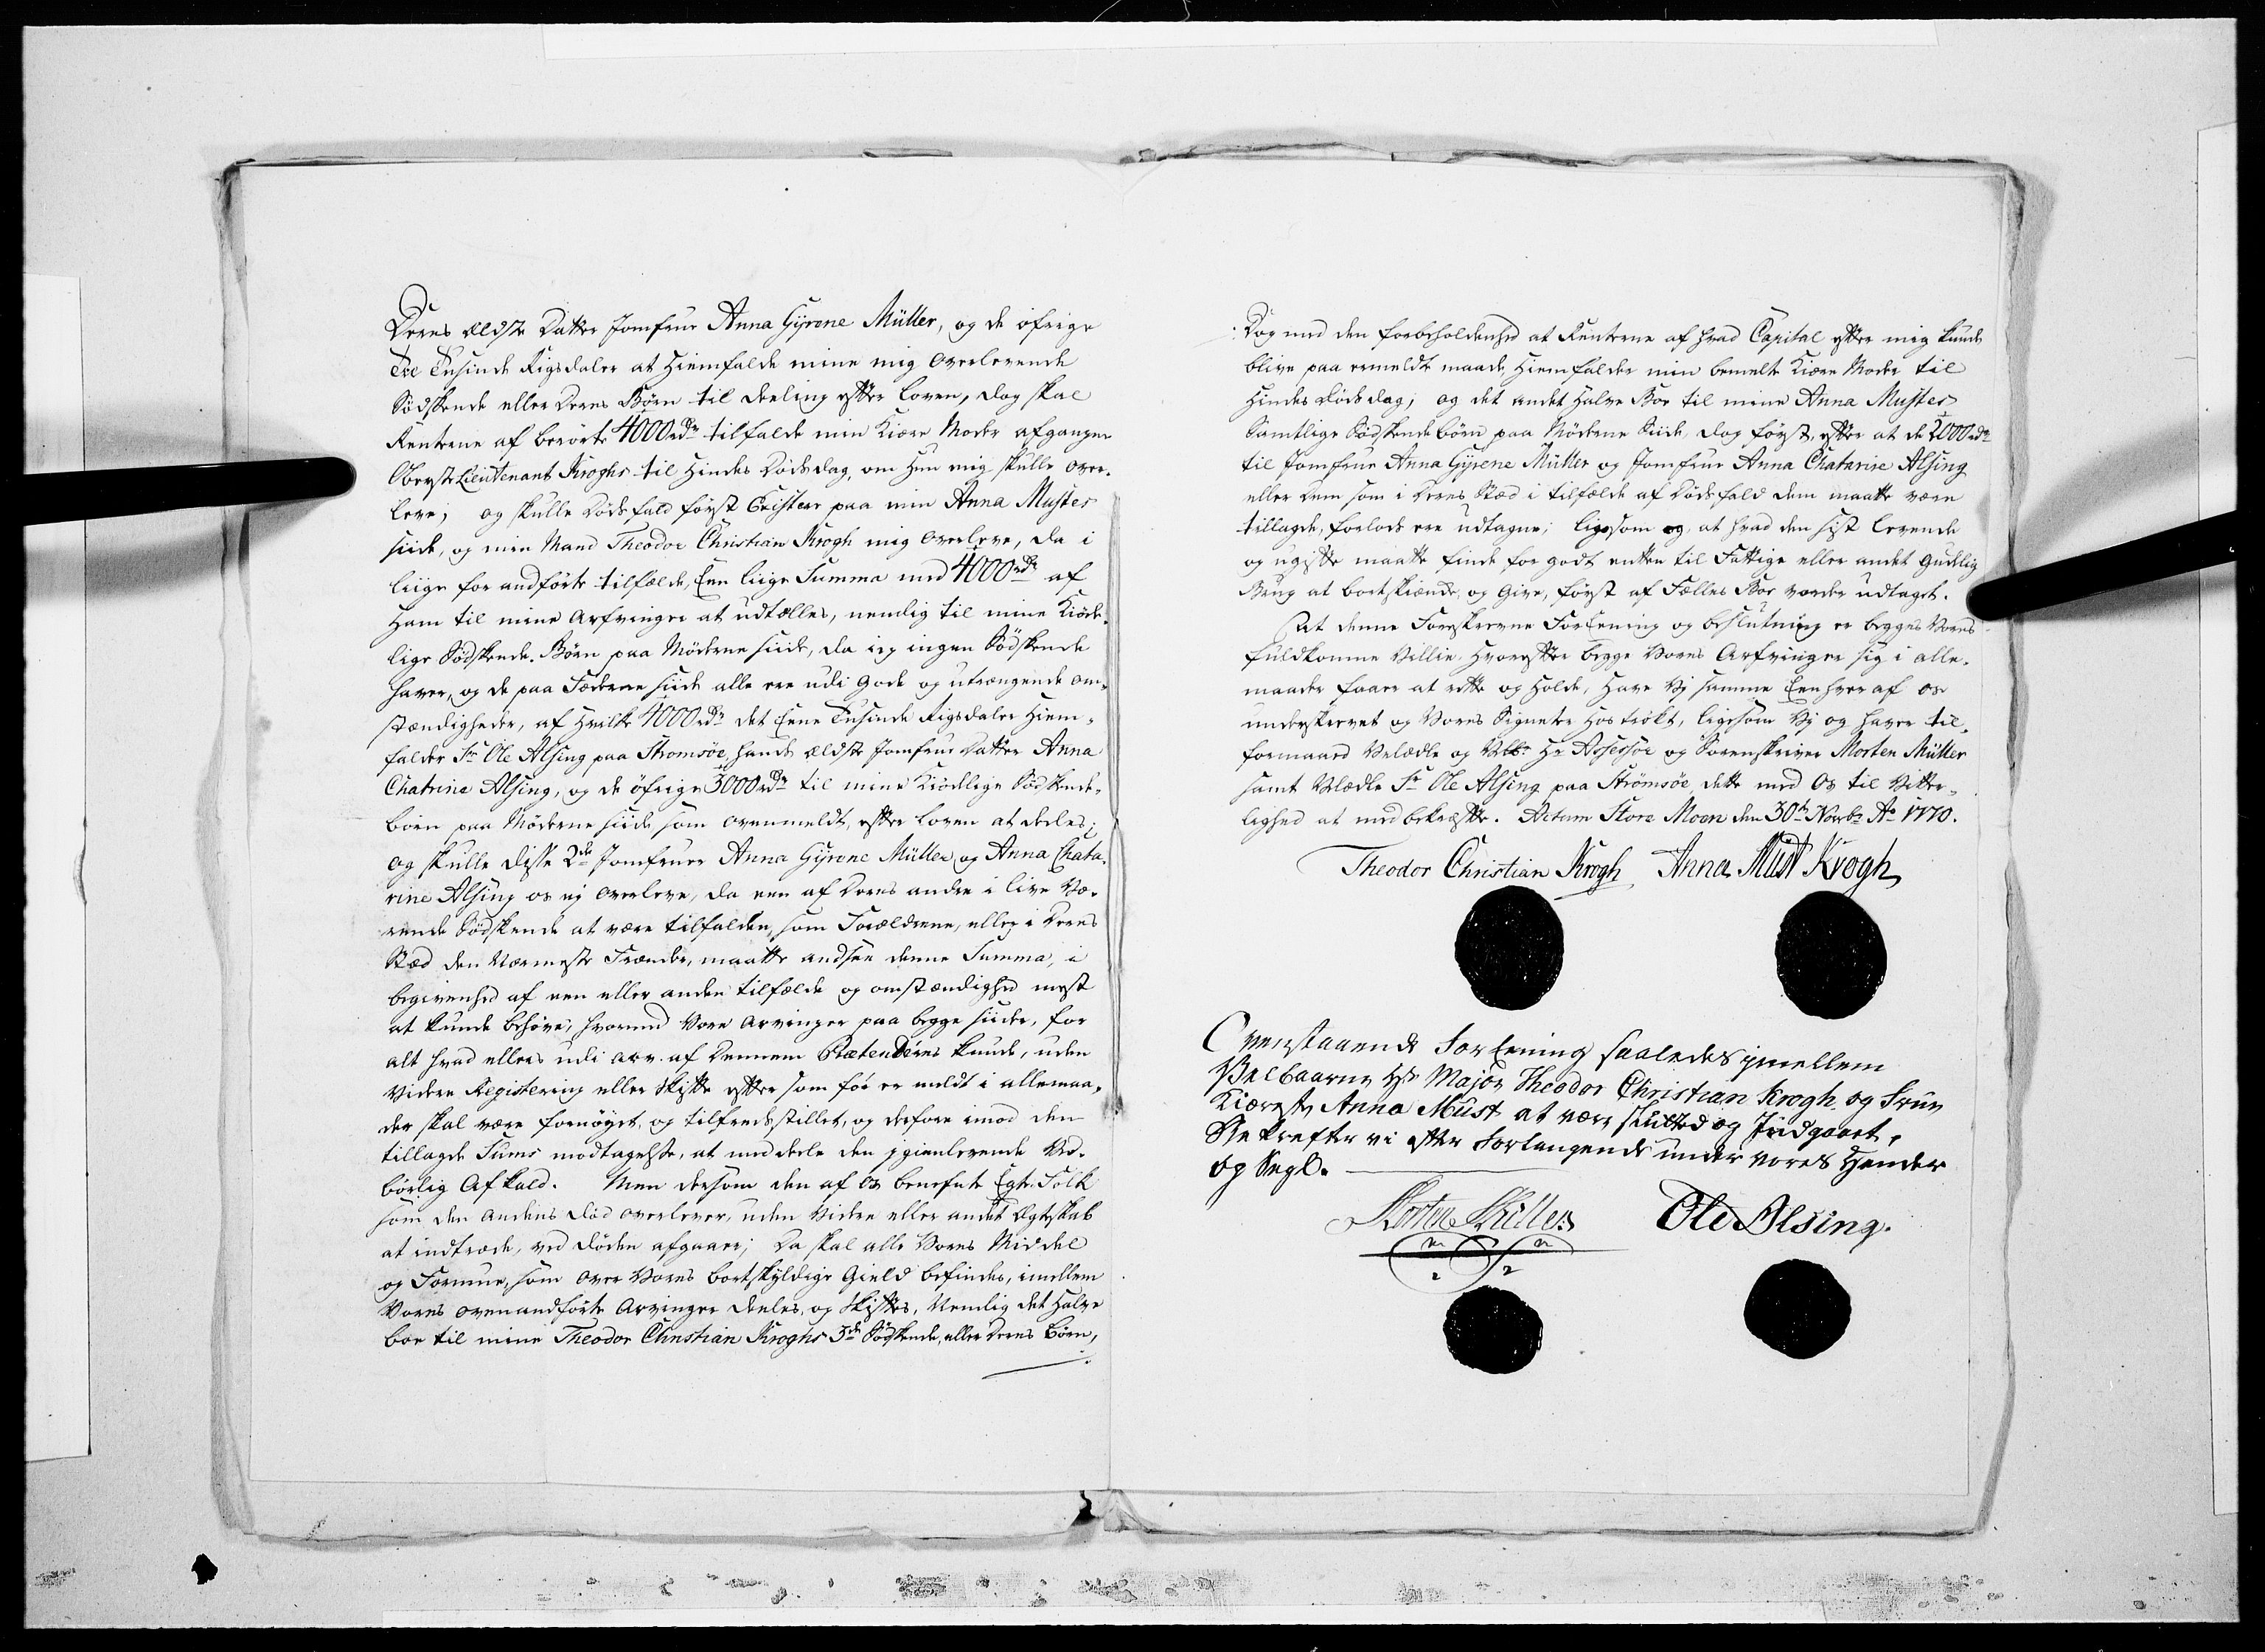 Deres ældste Datter Jomfrue Anna Gÿrene Müller, og de øfrige
Tre Tusinde Rigsdaler at Hiemfalde mine mig overlevende
Södskende eller Deres Børn til deeling efter loven, dog skal
Renterne af berørte 4000 rdr tilfalde min Kiære Moder afgangne
Oberste Lieutenant Kroghs til Hindes Dödsdag, om Hun mig skulle over-
leve; og skulle Dödsfald først Existere paa min Anna Mustes
siide, og min Mand Theodor Christian Krogh mig overleve, da i
liige for andførte tilfælde, Een liige Summa med 4000 rdr af
Ham til mine Arfvinger at udtælles, nemlig til mine Kiöde-
lige Södskende-Børn paa Möderne siide, da ieg ingen Södskende
haver, og de paa Fæderne siide alle ere udi gode og utrængende om-
stændigheder, af Hvilke 4000 rdr det Eene Tusinde Rigsdaler Hiem-
falder Sr Ole Alsing paa Strømsöe, hands ældste Jomfrue Datter Anna
Chatrine Alsing, og de öfrige 3000 rdr til mine Kiödlige Södskende-
börn paa Möderne siide som ovenmeldt, efter loven at deeles;
og skulle disse 2de Jomfruer Anna Gÿrene Müller og Anna Chata-
rine Alsing os ej overleve, da een af Deres andre i live Væ-
rende Södskende at være tilfalden, som Forældrene, eller i Deres
Stæd den Nærmeste Frænder, maatte andsee denne Summa, i
begivenhed af een eller anden tilfælde og omstændighed mest
at kunde behöve; hvormed Vore Arvinger paa begge siider, for
alt hvad ellers udi arv af Dennem Prætenderes kunde, uden
Videre Registering eller Skifte efter som før er meldt i allemaa-
der skal være fornøyet, og tilfredsstillet, og derfore imod den
tillagde Sums modtagelse, at meddeele den igienlevende Ved-
börlig Afkald. Men dersom den af Os benefnte Egte-Folk
som den Andens Död overlever, uden Videre eller andet Ægteskab
at indtræde, ved Döden afgaaer; Da skal alle Vores Middel
og Formue, som over Vores bortskyldige Gield befindes, imellem
Vores ovenandførte Arvinger deeles, og Skiftes, Nemlig det Halve
boe til mine Theodor Christian Kroghs 3de Södskende, eller Deres Börn,
Dog med den forbeholdenhed at Renterne af hvad Capital efter mig kunde
blive paa ermeldte maade, Hiemfalder min bemelte Kiære Moder til
Hindes Dödsdag; og det andet Halve Boe til mine Anna Mustes
Samtlige Södskendebörn paa Möderne Siide, dog først, efter at de 2000 rdr
til Jomfrue Anna Gÿrene Müller og Jomfrue Anna Chatarine Alsing
eller Dem som i Deres Stæd i tilfælde af Dödsfald dem maatte være
tillagde, forlods ere udtagne; ligesom og, at hvad den sist levende
og ugifte maatte finde for godt enten til Fattige eller andet Gudelig
Brug at bortskiænde, og Give, først af Fælles Boe vorder udtaget.
At denne Foreskrevne Foreening og beslutning er begges Vores
fuldkomne Villie hvorefter begge Vores Arfvinger sig i alle-
maader haver at rette og Holde, Have Vj samme Eenhver af os
underskrevet og Vores Signeter Hos trökt, ligesom Vj og haver til-
formaaed Velædle og Hr Assessor og Sorenskriver Morten Müller
samt Velædle Sr Ole Alsing paa Strømsöe, dette med Os til Vitter-
lighed at medbekræfte. Actum Store Moen den 30te Novbr Ao 1770.
Theodor Christian Krogh Anna Must Krogh
Ovenstaaende Foreening saaledes imellem
Velbaarne Hr Major Theodor Christian Krogh og Frue
Kiæreste Anna Must at være slutted og Indgaaet,
Bekrefter vi efter Forlangende under vores Hender
og Segl.
Morten Müller Ole Alsing.